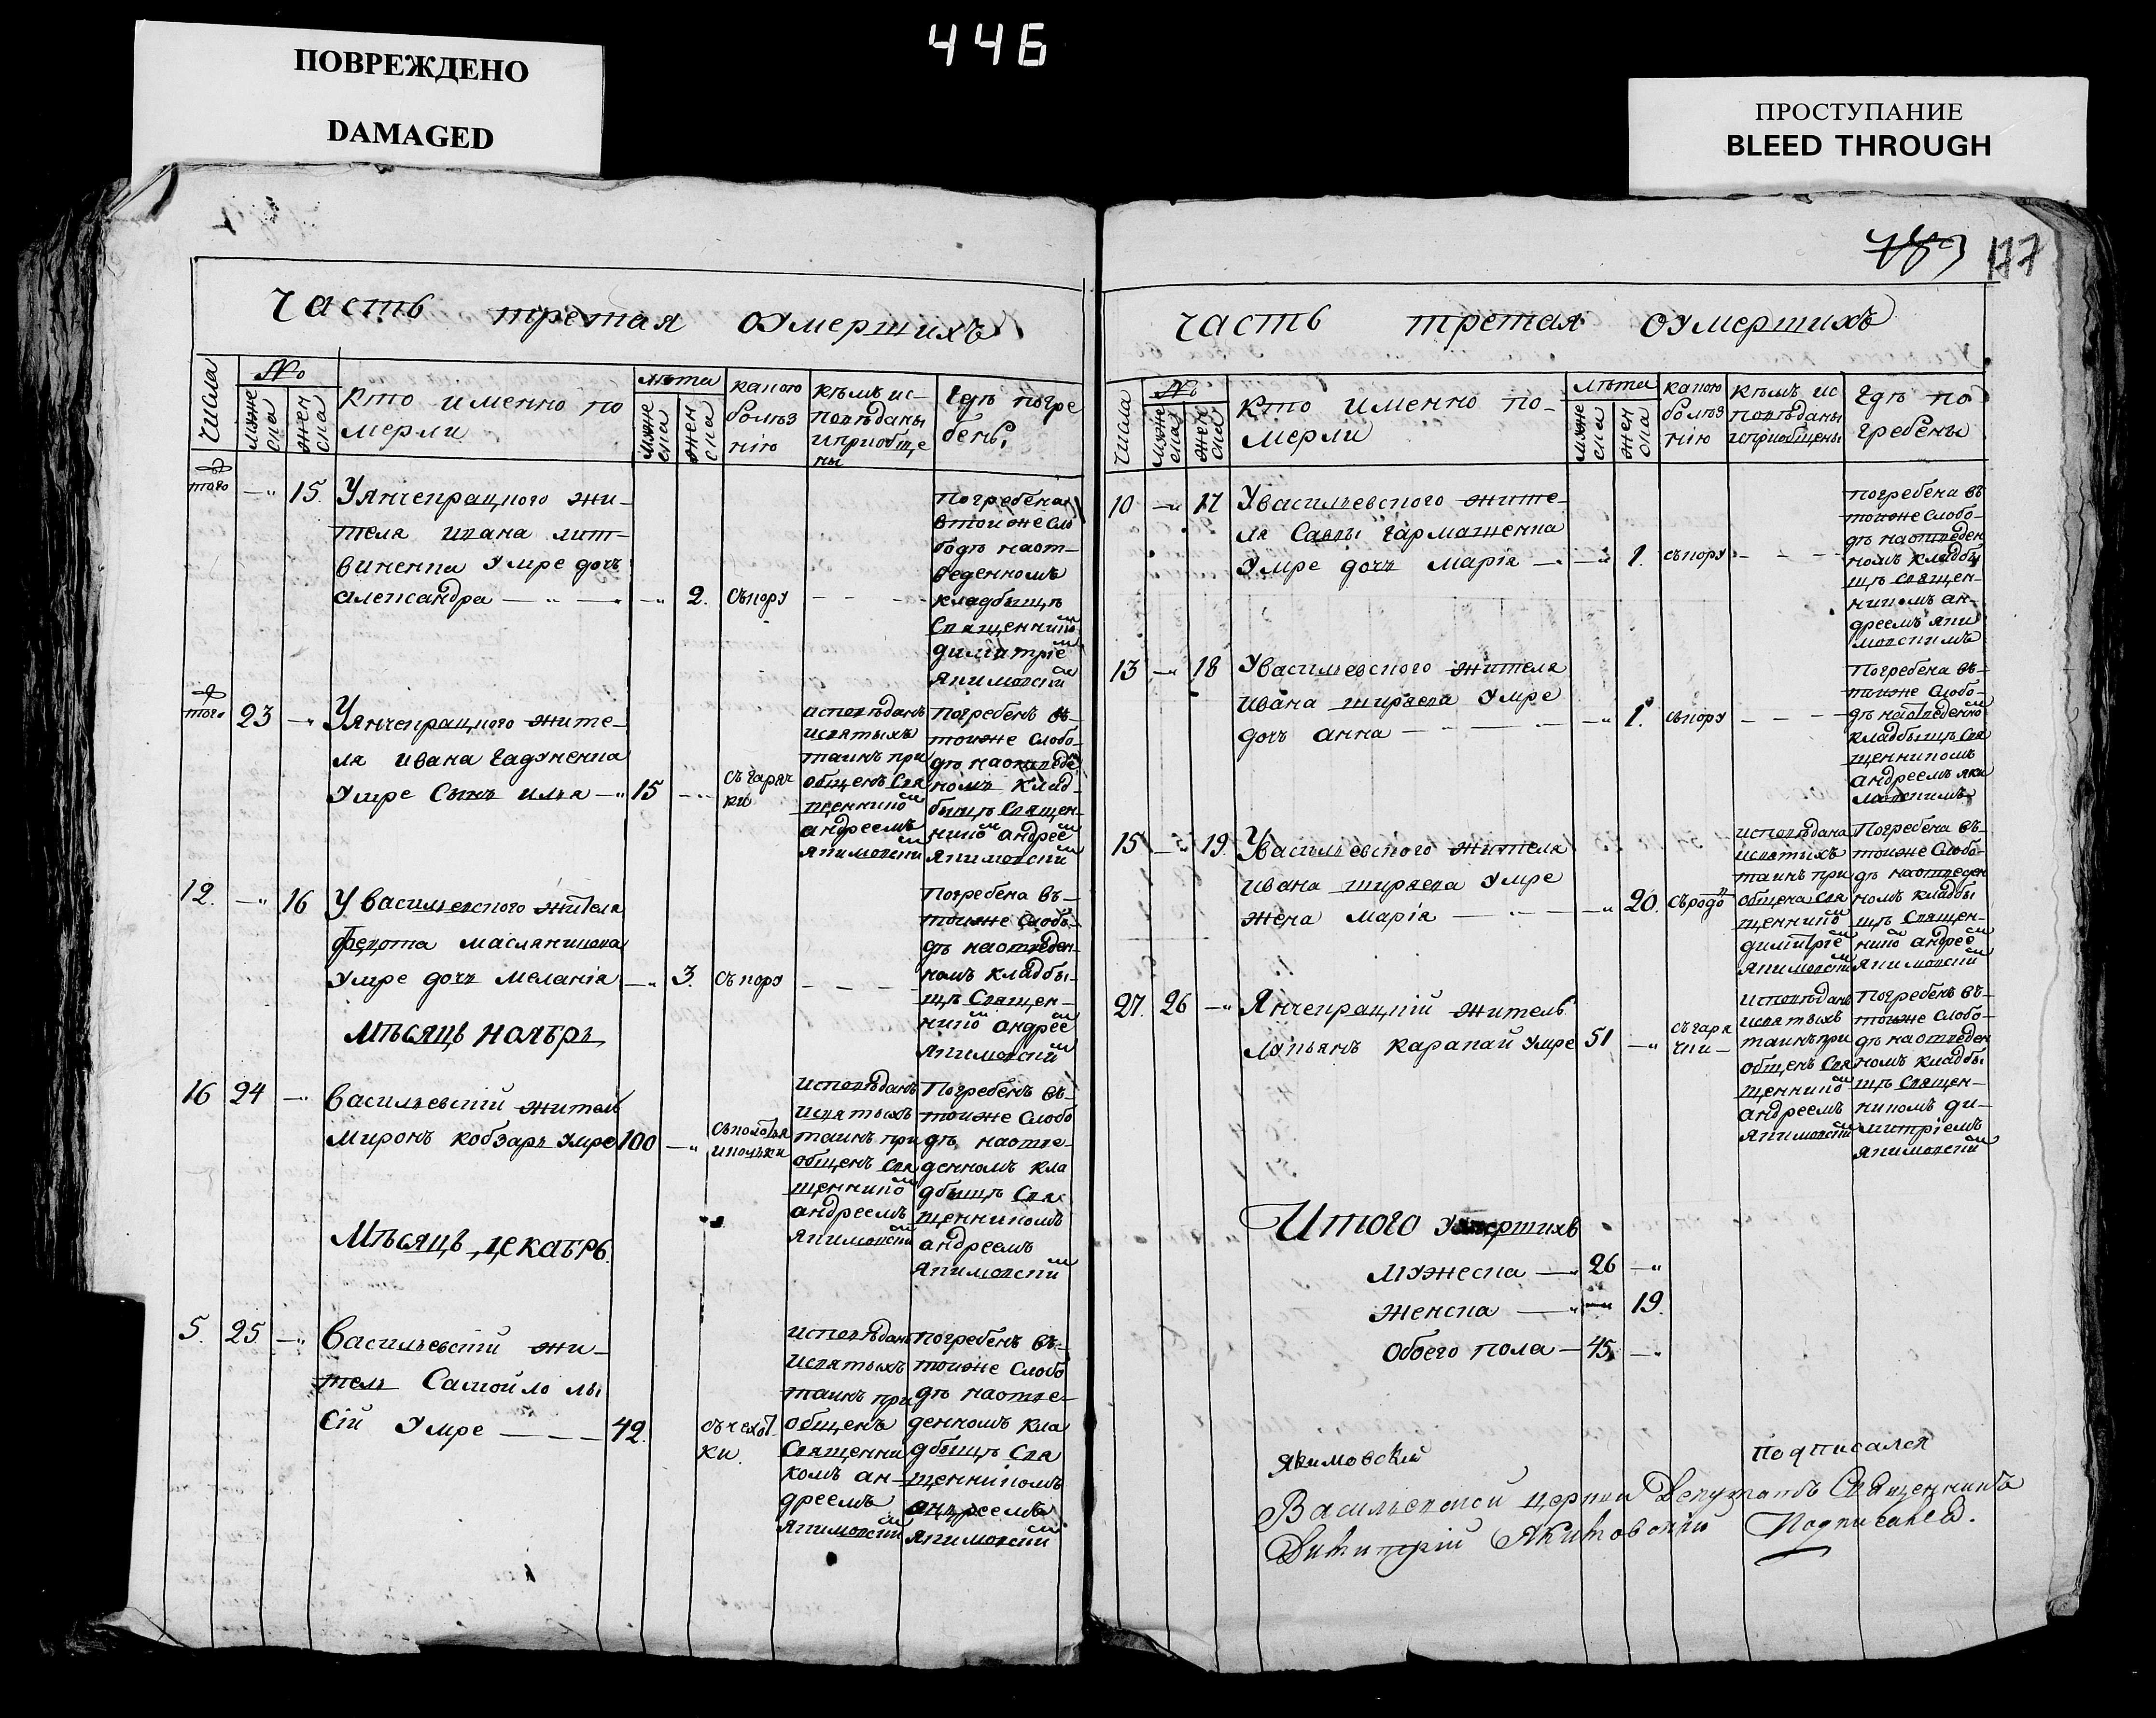 446
ПОВРЕЖДЕНО
DAMAGED
ПРОСТУПАНИЕ
BLEED THROUGH
Часть третая оумершихъ
Числа
№
мужеска
женска
кто именно по
мерли
лѣта
мужеска
женска
какою
болѣз
нію
кѣмъ ис-
повѣданы
и приобще
ны
Гдѣ погре
бены
того — 15.
Уянчекрацкого жи-
теля ивана лит-
виненка умре дочь
александра — 2. съкору
погребена
втойже сло
бодѣ наот-
веденномъ
кладбищѣ
Священнико
димитріе
якимовски
того 23 —
Уянчекрацкого жите-
ля ивана гадуненка
умре сынъ илья — 15 —
съгаряч
ки
исповѣданъ
исвятыхъ
таинъ при
общенъ свя
щеннико
андреемъ
якимовски
погребенъ въ-
тойже слобо-
дѣ наотведе
номъ клад-
бищѣ священ-
нико андрее
якимовски
12. — 16
У васильевского жителя
федота маслянникова
умре дочь меланія — 3. съкору
погребена въ-
тойже слобо-
дѣ наотведен-
номъ кладби-
щѣ священ-
нико андрее
якимовски
мѣсяцъ ноябрь
16 24 —
васильевскій житель
миронъ кобзарь умре 100 —
исповѣданъ
исвятыхъ
таинъ при
общенъ свя
щеннико
андреемъ
якимовски
Погребенъ въ-
тойже слобо
дѣ наотве-
денномъ кла
дбищѣ свя
щенникомъ
андреемъ
якимовски
мѣсяцъ декабрь.
5. 25 —
васильевскій жи-
тель Самойло лы
сій умре — 42.
съчехот
ки.
исповѣданъ
исвятыхъ
таинъ при
общенъ
священни
комъ ан-
дреемъ
якимовски
погребенъ въ-
тойже слобо
дѣ наотве-
денномъ кла
дбищѣ свя
щенникомъ
андреемъ
якимовски
177
часть третая оумершихъ
Числа
№
мужеска
женска
кто именно по-
мерли
лѣта
мужеска
женска
какою
болѣз
нію
кѣмъ ис
повѣданы
иприобщены
гдѣ по
гребены
10 — 17
Увасильевского жите-
ля Савы гармашенка
умре дочь марія — 1. съкору
погребена въ
тойже слобо-
дѣ наотведен
номъ кладби
щѣ священ-
никомъ ан-
дреемъ яки
мовскимъ
13 — 18
Увасильевского жителя
ивана ширяева умре
дочь анна — 1. съкору
Погребена въ-
тойже слобо-
дѣ наотведенно
кладбищѣ свя
щенникомъ
андреемъ яки
мовскимъ
15 — 19.
Увасильевского жителя
ивана ширяева умре
жена марія — 20. съродо
исповѣдана
исвятыхъ
таинъ при
общена свя
щеннико
димитріе
якимовски
Погребена въ-
тойже слобо-
дѣ наотведен
номъ кладби
щѣ священ-
нико андрее
якимовски
27. 26 —
Янчекрацкій житель
лукьянъ каракай умре 51 —
съгаря
чки —
исповѣданъ
исвятыхъ
таинъ при
общенъ свя
щеннико
андреемъ
якимовски
погребенъ въ-
тойже слобо-
дѣ наотведен
номъ кладби
щѣ священ-
никомъ ди-
митріемъ
якимовски
Итого умершихъ
мужеска — 26 —
женска — 19.
обоего пола — 45 —
якимовскій подписался
Васильевской церкви Депутатъ Священникъ
Димитрій Якимовскій Подписался.